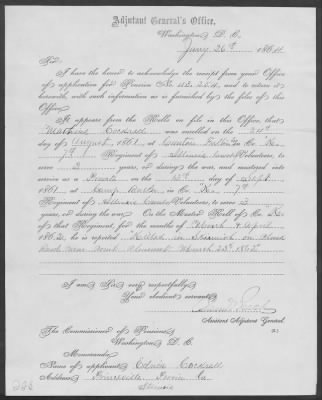 Adjutant General's Office,
Washington, D. C.
Jany 26th, 1864
Sir:
I have the honor to acknowledge the receipt from your Office
of application for Pension No. 112.2511, and to return it
herewith, with such information as is furnished by the files of this
Office.
It appears from the Rolls on file in this Office, that
Cockrell was enrolled on the 24th
day of August, 1861, at Canton in Co. "K"
7th Regiment of Illinois Volunteers, to
serve 3 years, or during the war, and mustered into
service as a Private on the day of Sept.
1861, at Camp Butler, in Co. "K" 7th
Regiment of Illinois Volunteers, to serve 3
years, or during the war. On the Muster Roll of Co. "K"
of that Regiment, for the months of March & April
1862, he is reported Killed in Skirmish on
road near March 23d 1862
I am, Sir, very respectfully,
Your obedient servant,
Assistant Adjutant General.
The Commissioner of Pensions,
Washington, D. C.
Memoranda:
Name of applicant, Cockrell
Address, Co.
Illinois